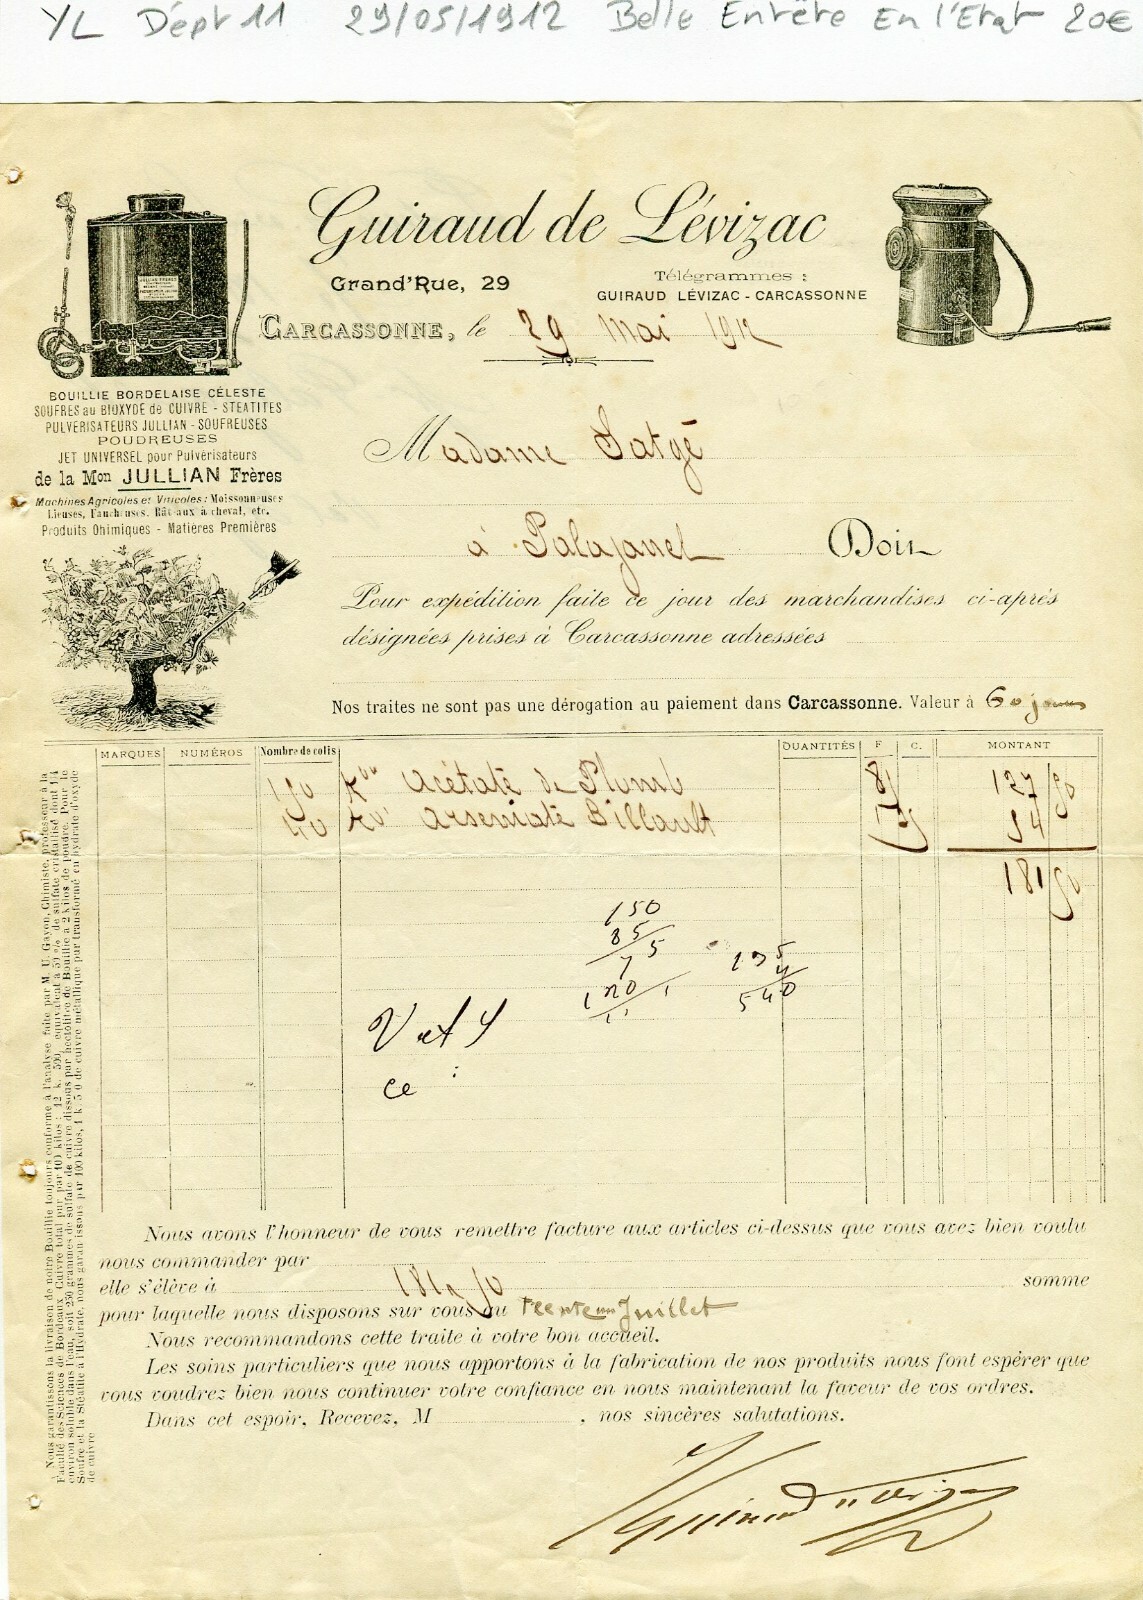 YL Dépt 11 29/05/1912 Belle Entête En l'Etat 20€
Guiraud de Lévizac
Grand'Rue, 29
Télégrammes :
GUIRAUD LÉVIZAC - CARCASSONNE
CARCASSONNE, le 29 Mai 1912
BOUILLIE BORDELAISE CÉLESTE
SOUFRES au BIOXYDE de CUIVRE - STEATITES
PULVERISATEURS JULLIAN - SOUFREUSES
POUDREUSES
JET UNIVERSEL pour Pulvérisateurs
de la Mon JULLIAN Frères
Machines Agricoles et Viticoles : Moissonneuses
Lieuses, Faucheuses, Râteaux à cheval, etc.
Produits Chimiques - Matières Premières
Madame Satgé
à Palajanel Doit
Pour expédition faite ce jour des marchandises ci-après
désignées prises à Carcassonne adressées
Nos traites ne sont pas une dérogation au paiement dans Carcassonne. Valeur à 60 jours
MARQUES NUMÉROS Nombre de colis QUANTITÉS F C. MONTANT
150 Kos Acétate de Plomb 85 127 50
40 Kos Arseniate Billault 54
181 50
150
85
7 5
120
135
4
540
V et Y
ce
Nous avons l'honneur de vous remettre facture aux articles ci-dessus que vous avez bien voulu
nous commander par
elle s'élève à 181,50 somme
pour laquelle nous disposons sur vous au trente un Juillet
Nous recommandons cette traite à votre bon accueil.
Les soins particuliers que nous apportons à la fabrication de nos produits nous font espérer que
vous voudrez bien nous continuer votre confiance en nous maintenant la faveur de vos ordres.
Dans cet espoir, Recevez, M , nos sincères salutations.
Guiraud de Lévizac
Nous garantissons la livraison de notre Bouillie toujours conforme à l'analyse faite par M. U. Gayon, Chimiste, professeur à la
Faculté des Sciences de Bordeaux. Cuivre total pur par 100 kilos : 12 k. 500, équivalent à 50 % de sulfate cristallisé dont 1/4
environ soluble dans l'eau, soit 250 grammes de sulfate de cuivre dissous par hectolitre de Bouillie à 2 kilos de poudre. Pour le
Soufre et la Stéatite à l'Hydrate, nous garantissons par 100 kilos, 1 k. 50 de cuivre métallique pur transformé en hydrate d'oxyde
de cuivre